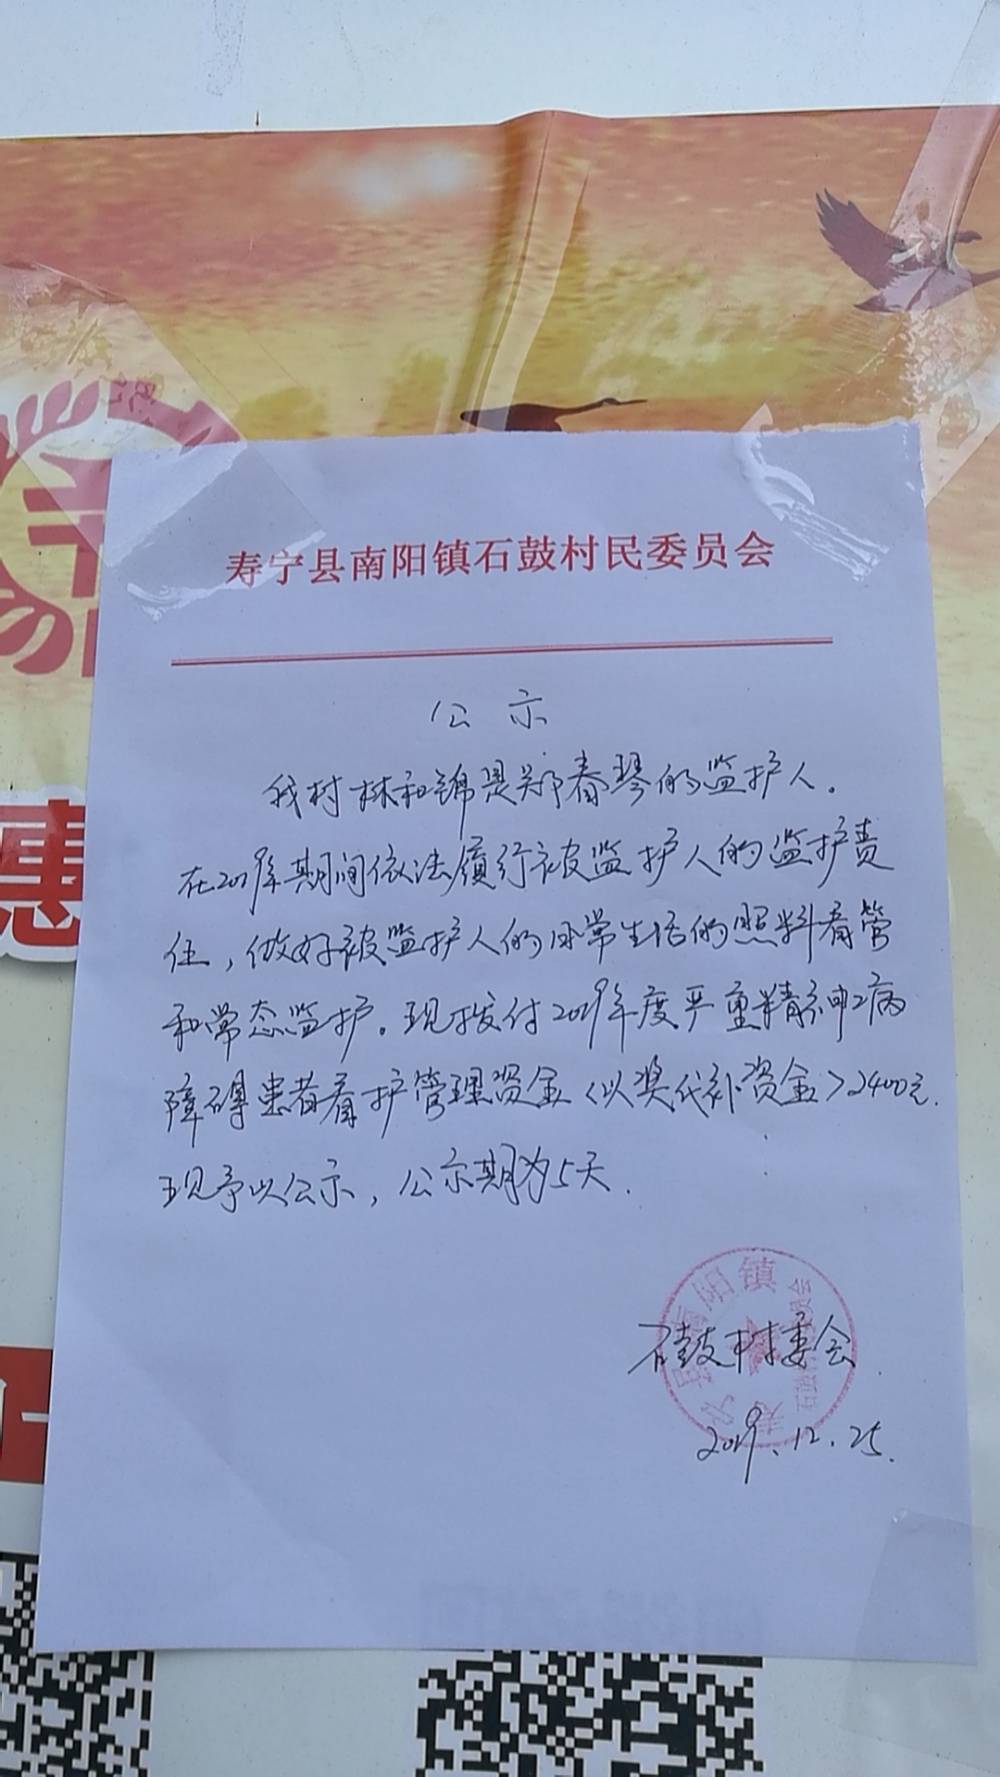 寿宁县南阳镇石鼓村民委员会
公示
我村林和锦是郑春琴的监护人。
在2019年期间依法履行被监护人的监护责
任，做好被监护人的日常生活的照料看管
和常态监护。现拨付2019年度严重精神病
障碍患者看护管理资金〈以奖代补资金〉2400元.
现予以公示，公示期为5天.
石鼓村委会
2019.12.25.
惠